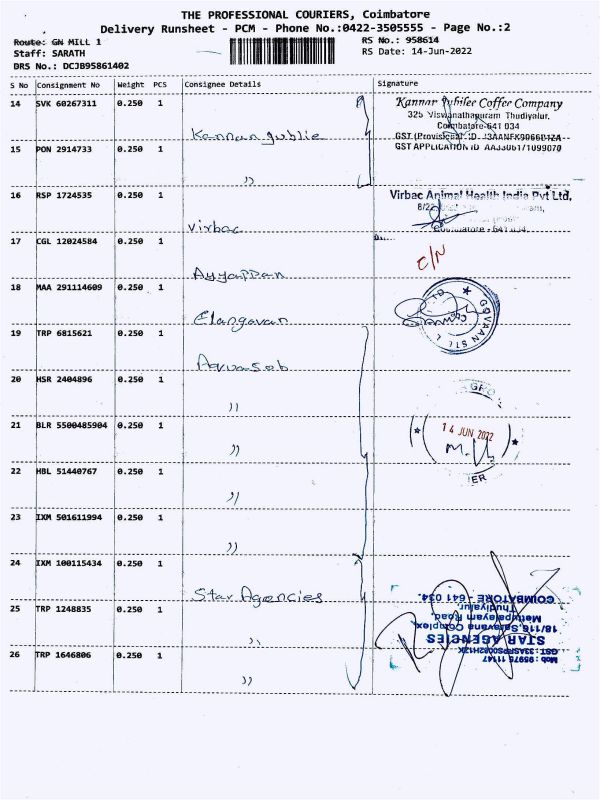 THE PROFESSIONAL COURIERS, Coimbatore
Delivery Runsheet - PCM - Phone No.:0422-3505555 - Page No.:2
Route: GN MILL 1
RS No.: 958614
Staff: SARATH
RS Date: 14-Jun-2022
DRS No.: DCJB95861402
S No Consignment No Weight PCS Consignee Details Signature
14 SVK 60267311 0.250 1
Kannan Jubilee Coffee Company
325 Viswanathapuram Thudiyalur.
Coimbatore-641 034
Kannan Jublie
15 PON 2914733 0.250 1
GST APPLICATION ID
"
16 RSP 1724535 0.250 1
Virbac Animal Health India Pvt Ltd,
Virbac
Coimbatore - 641 034.
17 CGL 12024584 0.250 1
C/N
Ayyappan
18 MAA 291114609 0.250 1
Elangovan
19 TRP 6815621 0.250 1
Aquasub
20 HSR 2404896 0.250 1
"
21 BLR 5500485904 0.250 1
14 JUN 2022
"
22 HBL 51440767 0.250 1
"
23 IXM 501611994 0.250 1
"
24 IXM 100115434 0.250 1
Star Agencies
25 TRP 1248835 0.250 1
"
26 TRP 1646806 0.250 1
"
Mob : 95975 11147
STAR AGENCIES
18/116, Saravana Complex,
Mettupalayam Road,
Thudiyalur,
COIMBATORE - 641 034.